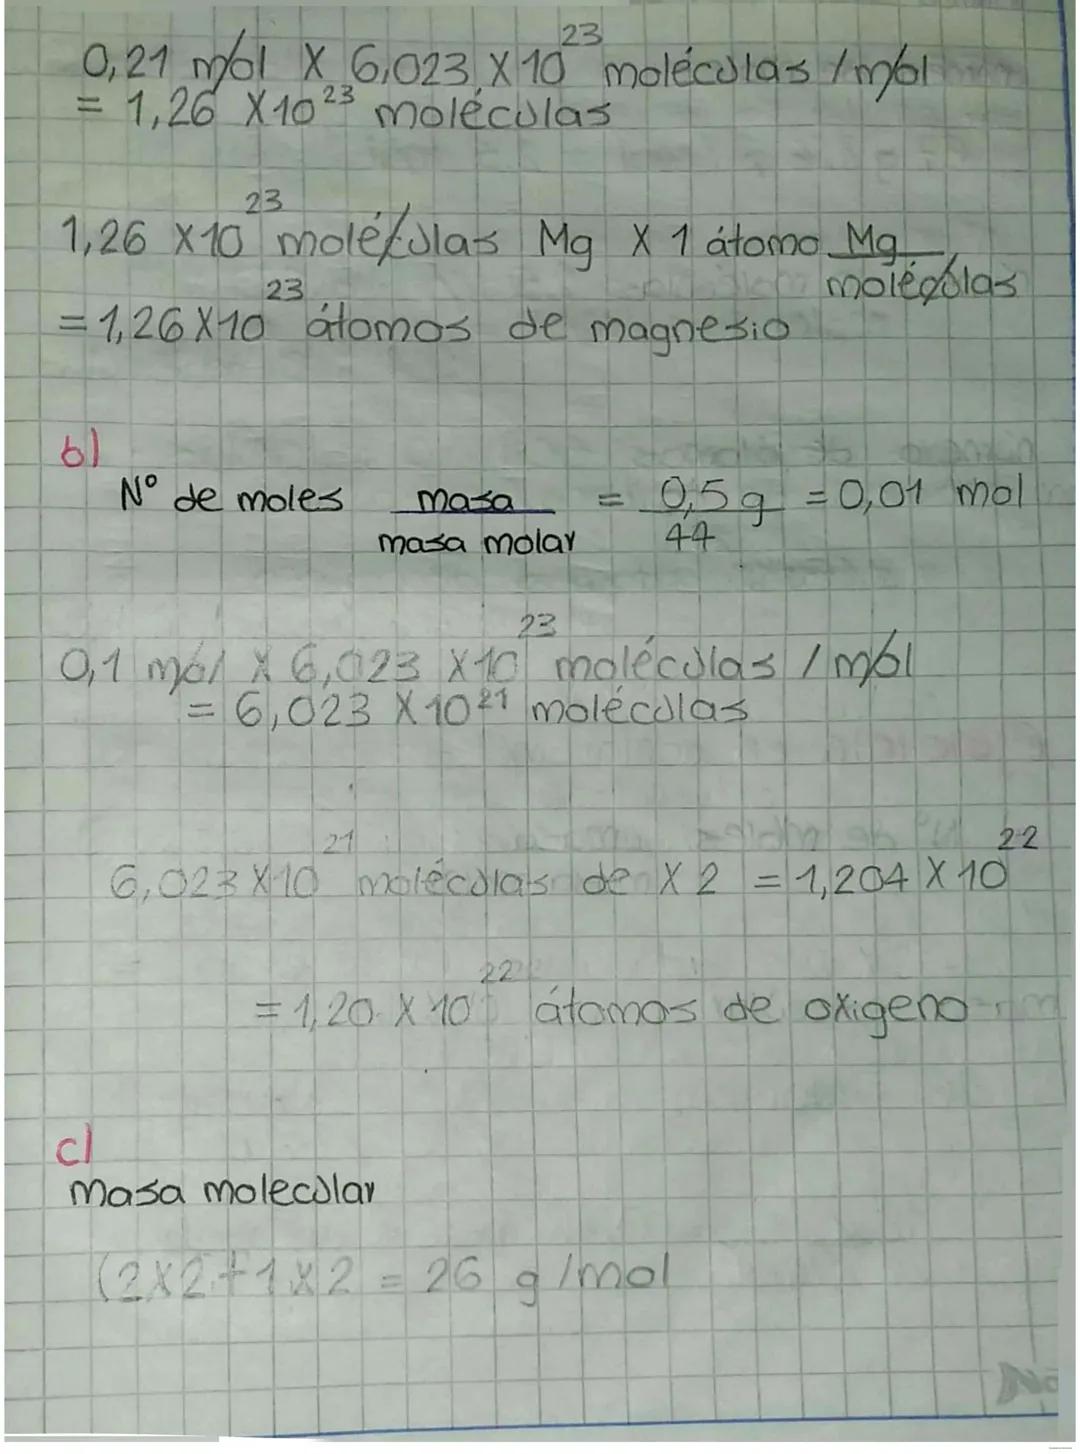 0,21 mol X 6,023 X 10²³ moléculas / mol
= 1,26 X10²³ moléculas
1,26 X10²³ moléculas Mg X 1 átomo Mg
moléculas
= 1,26 X10²³ átomos de magnesio
b)
N° de moles masa = 0,5 g = 0,01 mol
masa molar 44
0,1 mol X 6,023 X10²³ moléculas / mol
= 6,023 X10²¹ moléculas
6,023 X10²¹ moléculas de X 2 = 1,204 X 10²²
= 1,20 X 10²² átomos de oxigeno
c)
masa molecular
(2X2+1X2 = 26 g /mol